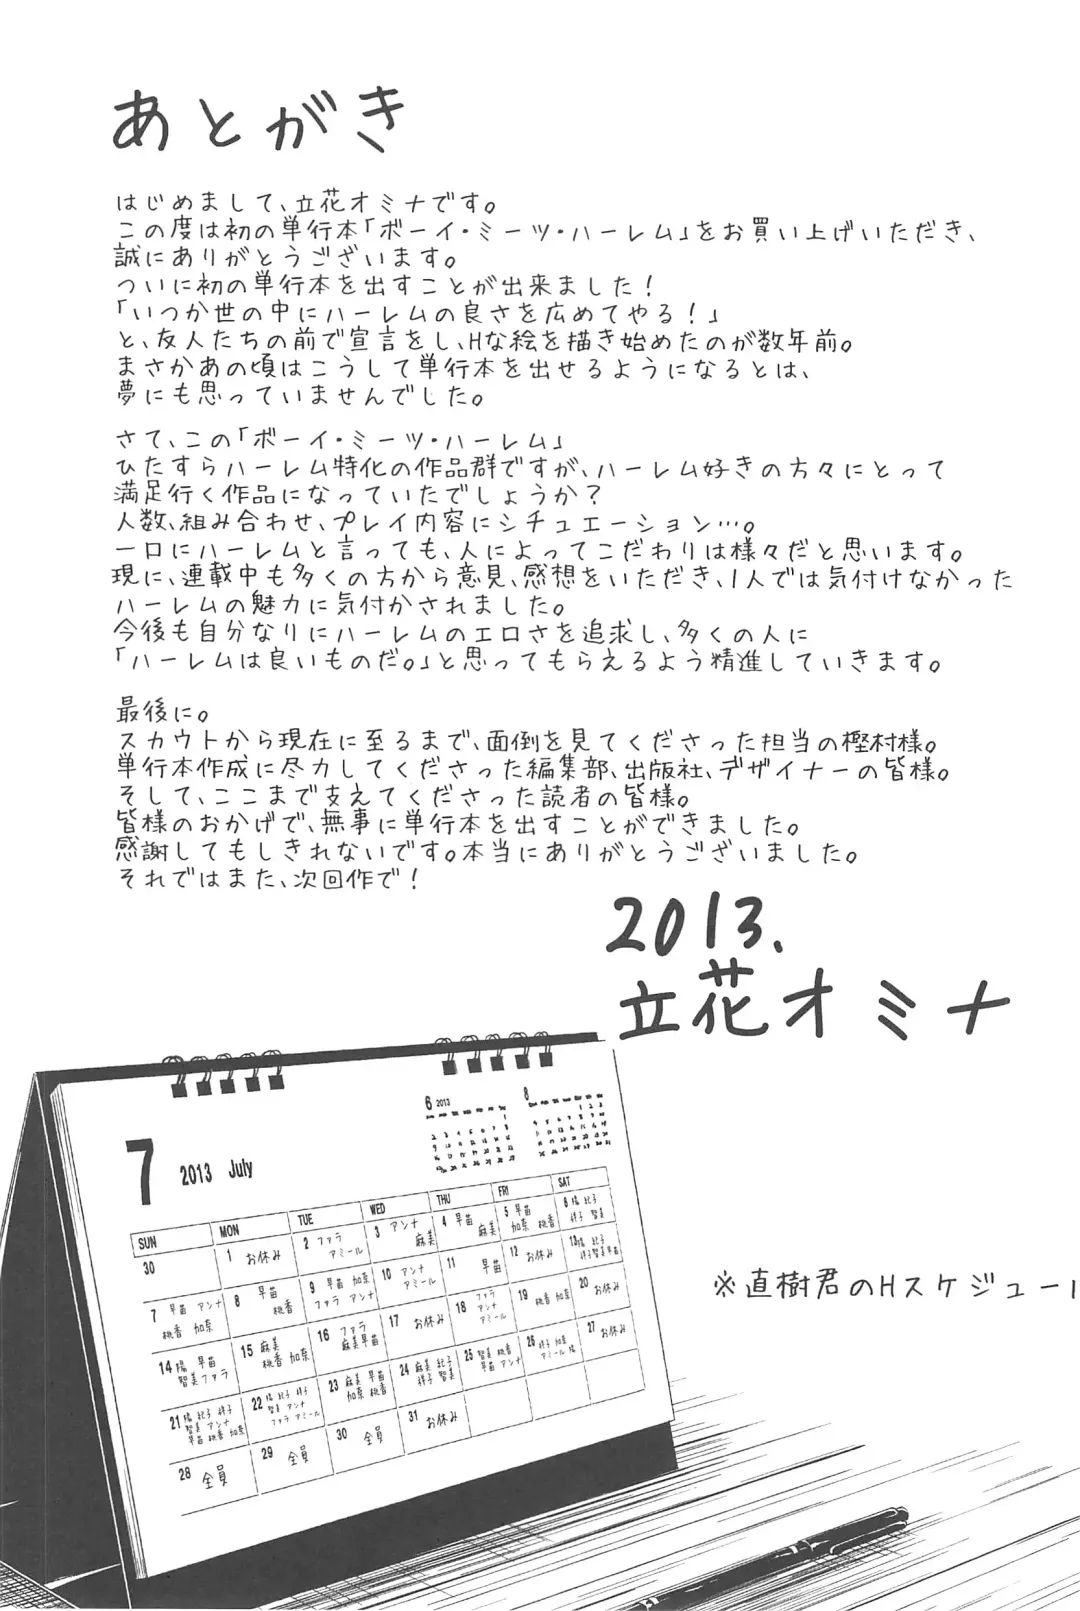 あとがき
はじめまして、立花オミナです。
この度は初の単行本「ボーイ・ミーツ・ハーレム」をお買い上げいただき、
誠にありがとうございます。
ついに初の単行本を出すことが出来ました!
「いつか世の中にハーレムの良さを広めてやる!」
と、友人たちの前で宣言をし、Hな絵を描き始めたのが数年前。
まさかあの頃はこうして単行本を出せるようになるとは、
夢にも思っていませんでした。
さて、この「ボーイ・ミーツ・ハーレム」
ひたすらハーレム特化の作品群ですが、ハーレム好きの方々にとって
満足行く作品になっていたでしょうか?
人数、組み合わせ、プレイ内容にシチュエーション…。
一口にハーレムと言っても、人によってこだわりは様々だと思います。
現に、連載中も多くの方から意見、感想をいただき、1人では気付けなかった
ハーレムの魅力に気付かされました。
今後も自分なりにハーレムのエロさを追求し、多くの人に
「ハーレムは良いものだ。」と思ってもらえるよう精進していきます。
最後に。
スカウトから現在に至るまで、面倒を見てくださった担当の樫村様。
単行本作成に尽力してくださった編集部、出版社、デザイナーの皆様。
そして、ここまで支えてくださった読者の皆様。
皆様のおかげで、無事に単行本を出すことができました。
感謝してもしきれないです。本当にありがとうございました。
それではまた、次回作で!
2013.
立花オミナ
7 2013 July
6 2013
8
SUN MON TUE WED THU FRI SAT
30
1 お休み
2 ファラ
アミール
3 アンナ
麻美
4 早苗
麻美
5 早苗
加奈 桃香
6 陽 紀子
祥子 智美
7 早苗 アンナ
桃香 加奈
8 早苗
桃香
9 早苗 加奈
ファラ アンナ
10 アンナ
アミール
11 早苗
12 お休み
13 陽 紀子
祥子 智美 早苗
14 陽 早苗
智美 ファラ
15 麻美
桃香 加奈
16 ファラ
麻美 早苗
17 お休み
18 ファラ
アンナ
アミール
19 桃香
20 お休み
21 陽 紀子 祥子
智美 アンナ
早苗 桃香 加奈
22 陽 紀子 祥子
智美 アンナ
ファラ アミール
23 麻美 早苗
加奈 桃香
24 麻美 紀子
祥子 智美
25 智美 桃香
早苗 アンナ
26 祥子 加奈
アミール 陽
27 お休み
28 全員
29 全員
30 全員
31 お休み
※直樹君のHスケジュール